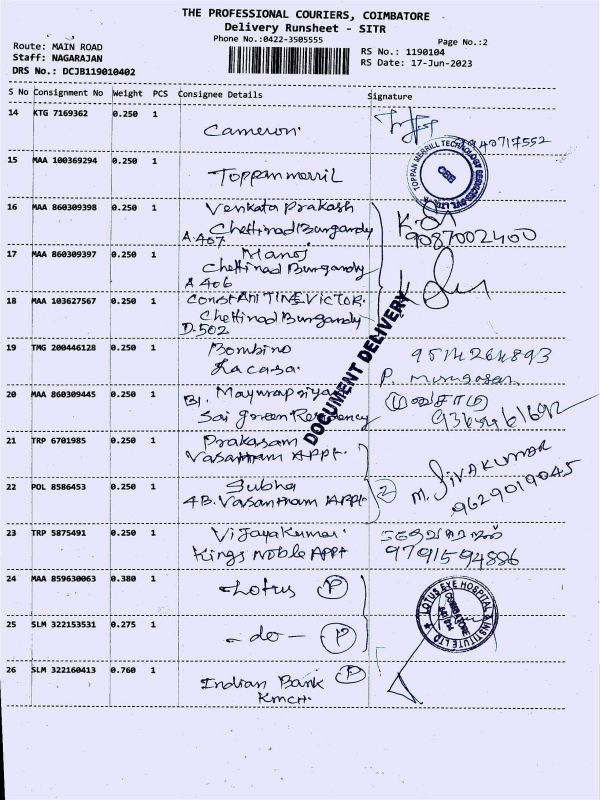 THE PROFESSIONAL COURIERS, COIMBATORE
Delivery Runsheet - SITR
Phone No.:0422-3505555
Page No.:2
Route: MAIN ROAD
Staff: NAGARAJAN
DRS No.: DCJB119010402
RS No.: 1190104
RS Date: 17-Jun-2023
S No Consignment No Weight PCS Consignee Details Signature
14 KTG 7169362 0.250 1 Cameron
15 MAA 100369294 0.250 1 Toppanmerril
TOPPAN MERRILL TECHNOLOGY SERVICES PVT. LTD.
CBE
16 MAA 860309398 0.250 1 Venkata Prakash
Chettinad Burgandy
A.407
9087002400
17 MAA 860309397 0.250 1 Manoj
Chettinad Burgandy
A 406
18 MAA 103627567 0.250 1 CONSTANTINE VICTOR.
Chettinad Burgandy
D.502
DOCUMENT DELIVERY
19 TMG 200446128 0.250 1 Bombino
Lacasa.
9514264893
P. Murugasan
20 MAA 860309445 0.250 1 B1. Mayurapriya
Sai green Residency
21 TRP 6701985 0.250 1 Prakasam
Vasantham APPt.
22 POL 8586453 0.250 1 Subha
4B. Vasantham APPt.
2
M. SIVAKUMAR
9629019045
23 TRP 5875491 0.250 1 Vijayakumar
Kings Noble APPt
9791594886
24 MAA 859630063 0.380 1 Lotus P
25 SLM 322153531 0.275 1 - do - P
LOTUS EYE HOSPITAL & INSTITUTE LTD
COIMBATORE
26 SLM 322160413 0.760 1 Indian Bank P
KMCH.